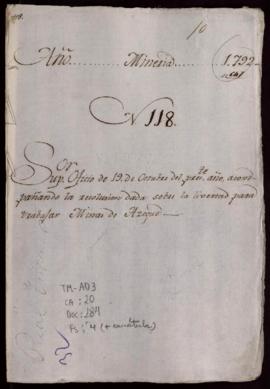 10
Año Mineria 1.792
N 118.
Sor
Sup. Oficio de 19. de Octubre del preste. año, acom
pañando la resolucion dada sobre la livertad para
travajar Minas de Azogue
TM-AD3
CA: 20
DOC: 184
Fs: 4 (+ carátula)